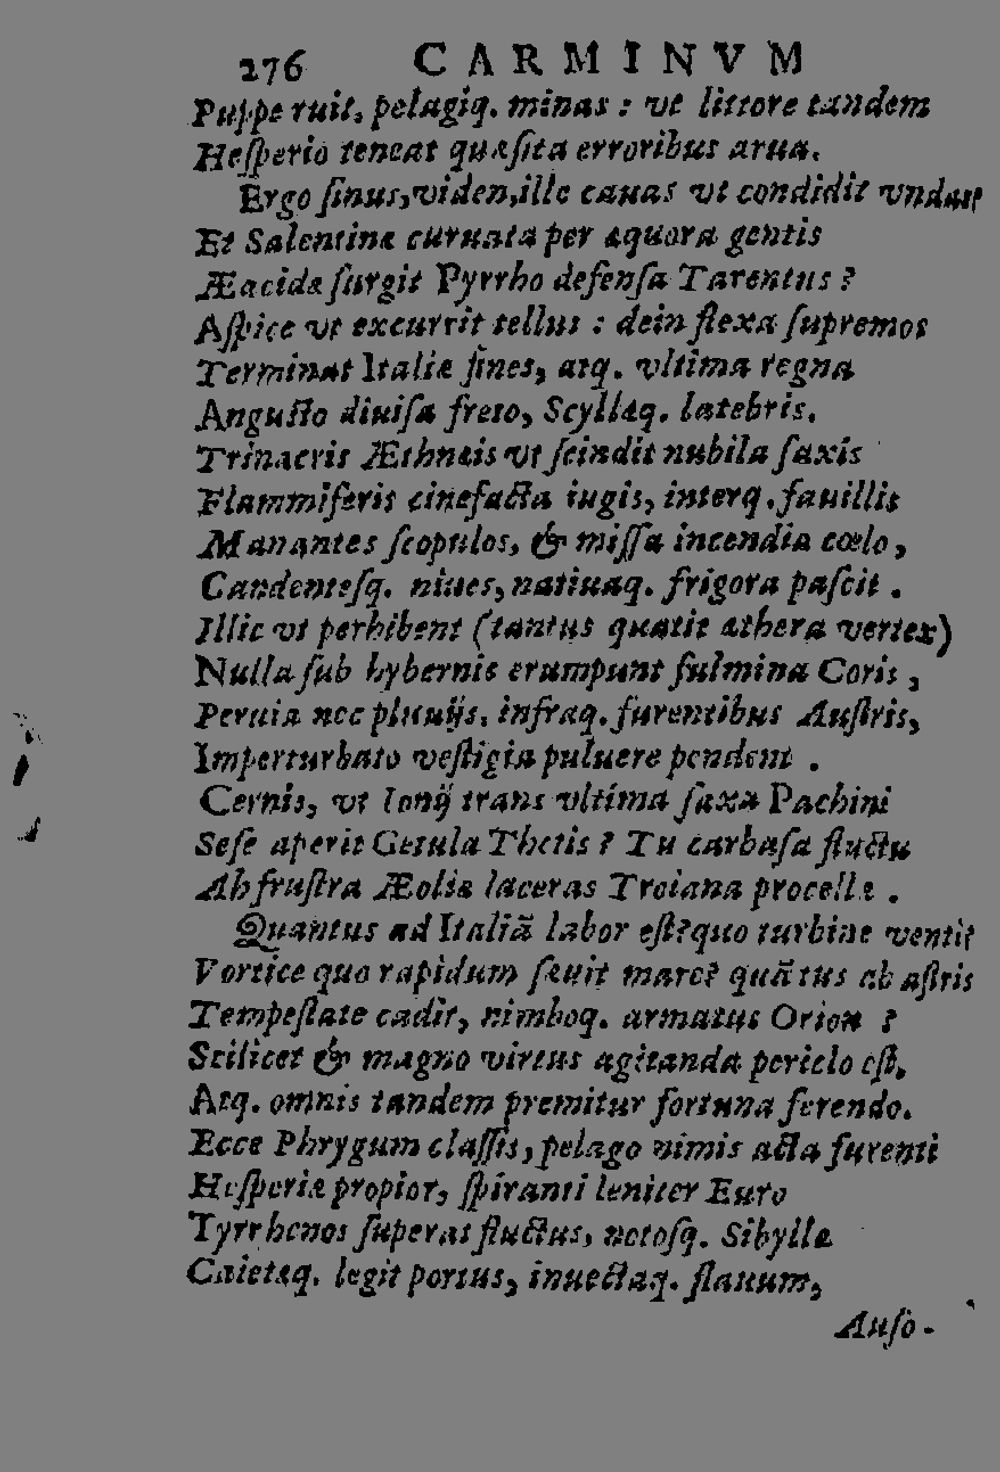 276 CARMINVM
Puppe ruit, pelagiq. minas : vt littore tandem
Heſperio teneat quæſita erroribus arua.
Ergo ſinus, viden, ille cauas vt condidit vndas?
Et Salentinæ curuata per æquora gentis
Æacidæ ſurgit Pyrrho defenſa Tarentus ?
Aſpice vt excurrit tellus : dein flexa ſupremos
Terminat Italiæ fines, atq. vltima regna
Anguſto diuiſa freto, Scyllæq. latebris.
Trinacris Æthnæis vt ſcindit nubila ſaxis
Flammiferis cinefacta iugis, interq. fauillis
Manantes ſcopulos, & miſſa incendia cœlo,
Candenteſq. niues, natiuaq. frigora paſcit .
Illic vt perhibent (tantus quatit æthera vertex)
Nulla ſub hybernis erumpunt fulmina Coris ,
Peruia nec pluuijs, infraq. furentibus Auſtris,
Imperturbato veſtigia puluere pendent .
Cernis, vt Ionij trans vltima ſaxa Pachini
Seſe aperit Getula Thetis ? Tu carbaſa fluctu
Ah fruſtra Æoliæ laceras Troiana procellæ .
Quantus ad Italiā labor eſt? quo turbine ventis?
Vortice quo rapidum ſæuit mare? quātus ab aſtris
Tempeſtate cadit, nimboq. armatus Orion ?
Scilicet & magno virtus agitanda periclo eſt,
Atq. omnis tandem premitur fortuna ferendo.
Ecce Phrygum claſſis, pelago nimis acta furenti
Heſperiæ propior, ſpiranti leniter Euro
Tyrrhenos ſuperat fluctus, notoſq. Sibyllæ
Caietæq. legit portus, inuectaq. flauum,
Auſo-